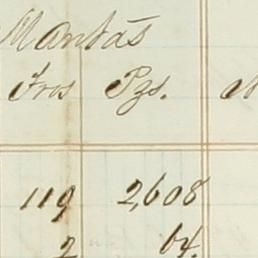 Mantas
Fros Pzs.
119 2,608
2 64.